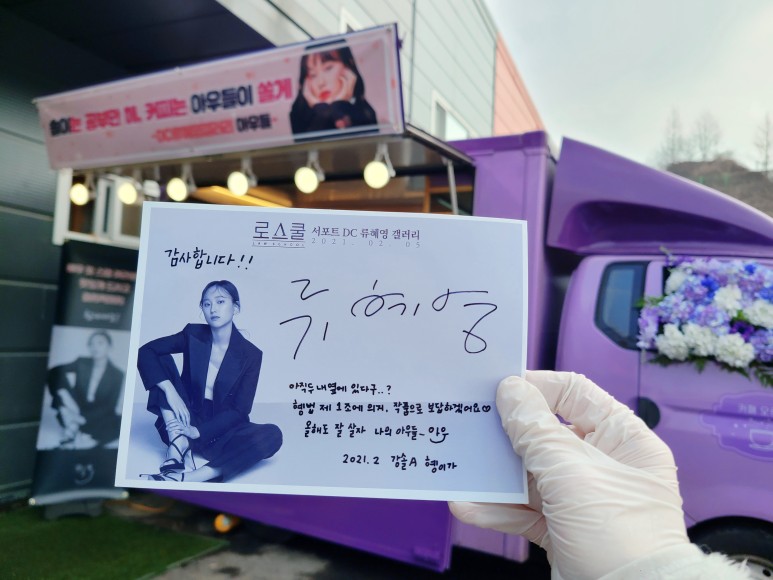 솔이는 공부만 해, 커피는 아우들이 쏠게
아우들-
로스쿨 서포트 DC 류혜영 갤러리
LAW SCHOOL 2021. 02. 05
감사합니다!!
류혜영
아직두 내 옆에 있다구..?
혱법 제 1조에 의거, 작품으로 보답하겠어요♡
올해도 잘 살자 나의 아우들_
2021.2 강솔A 혱이가